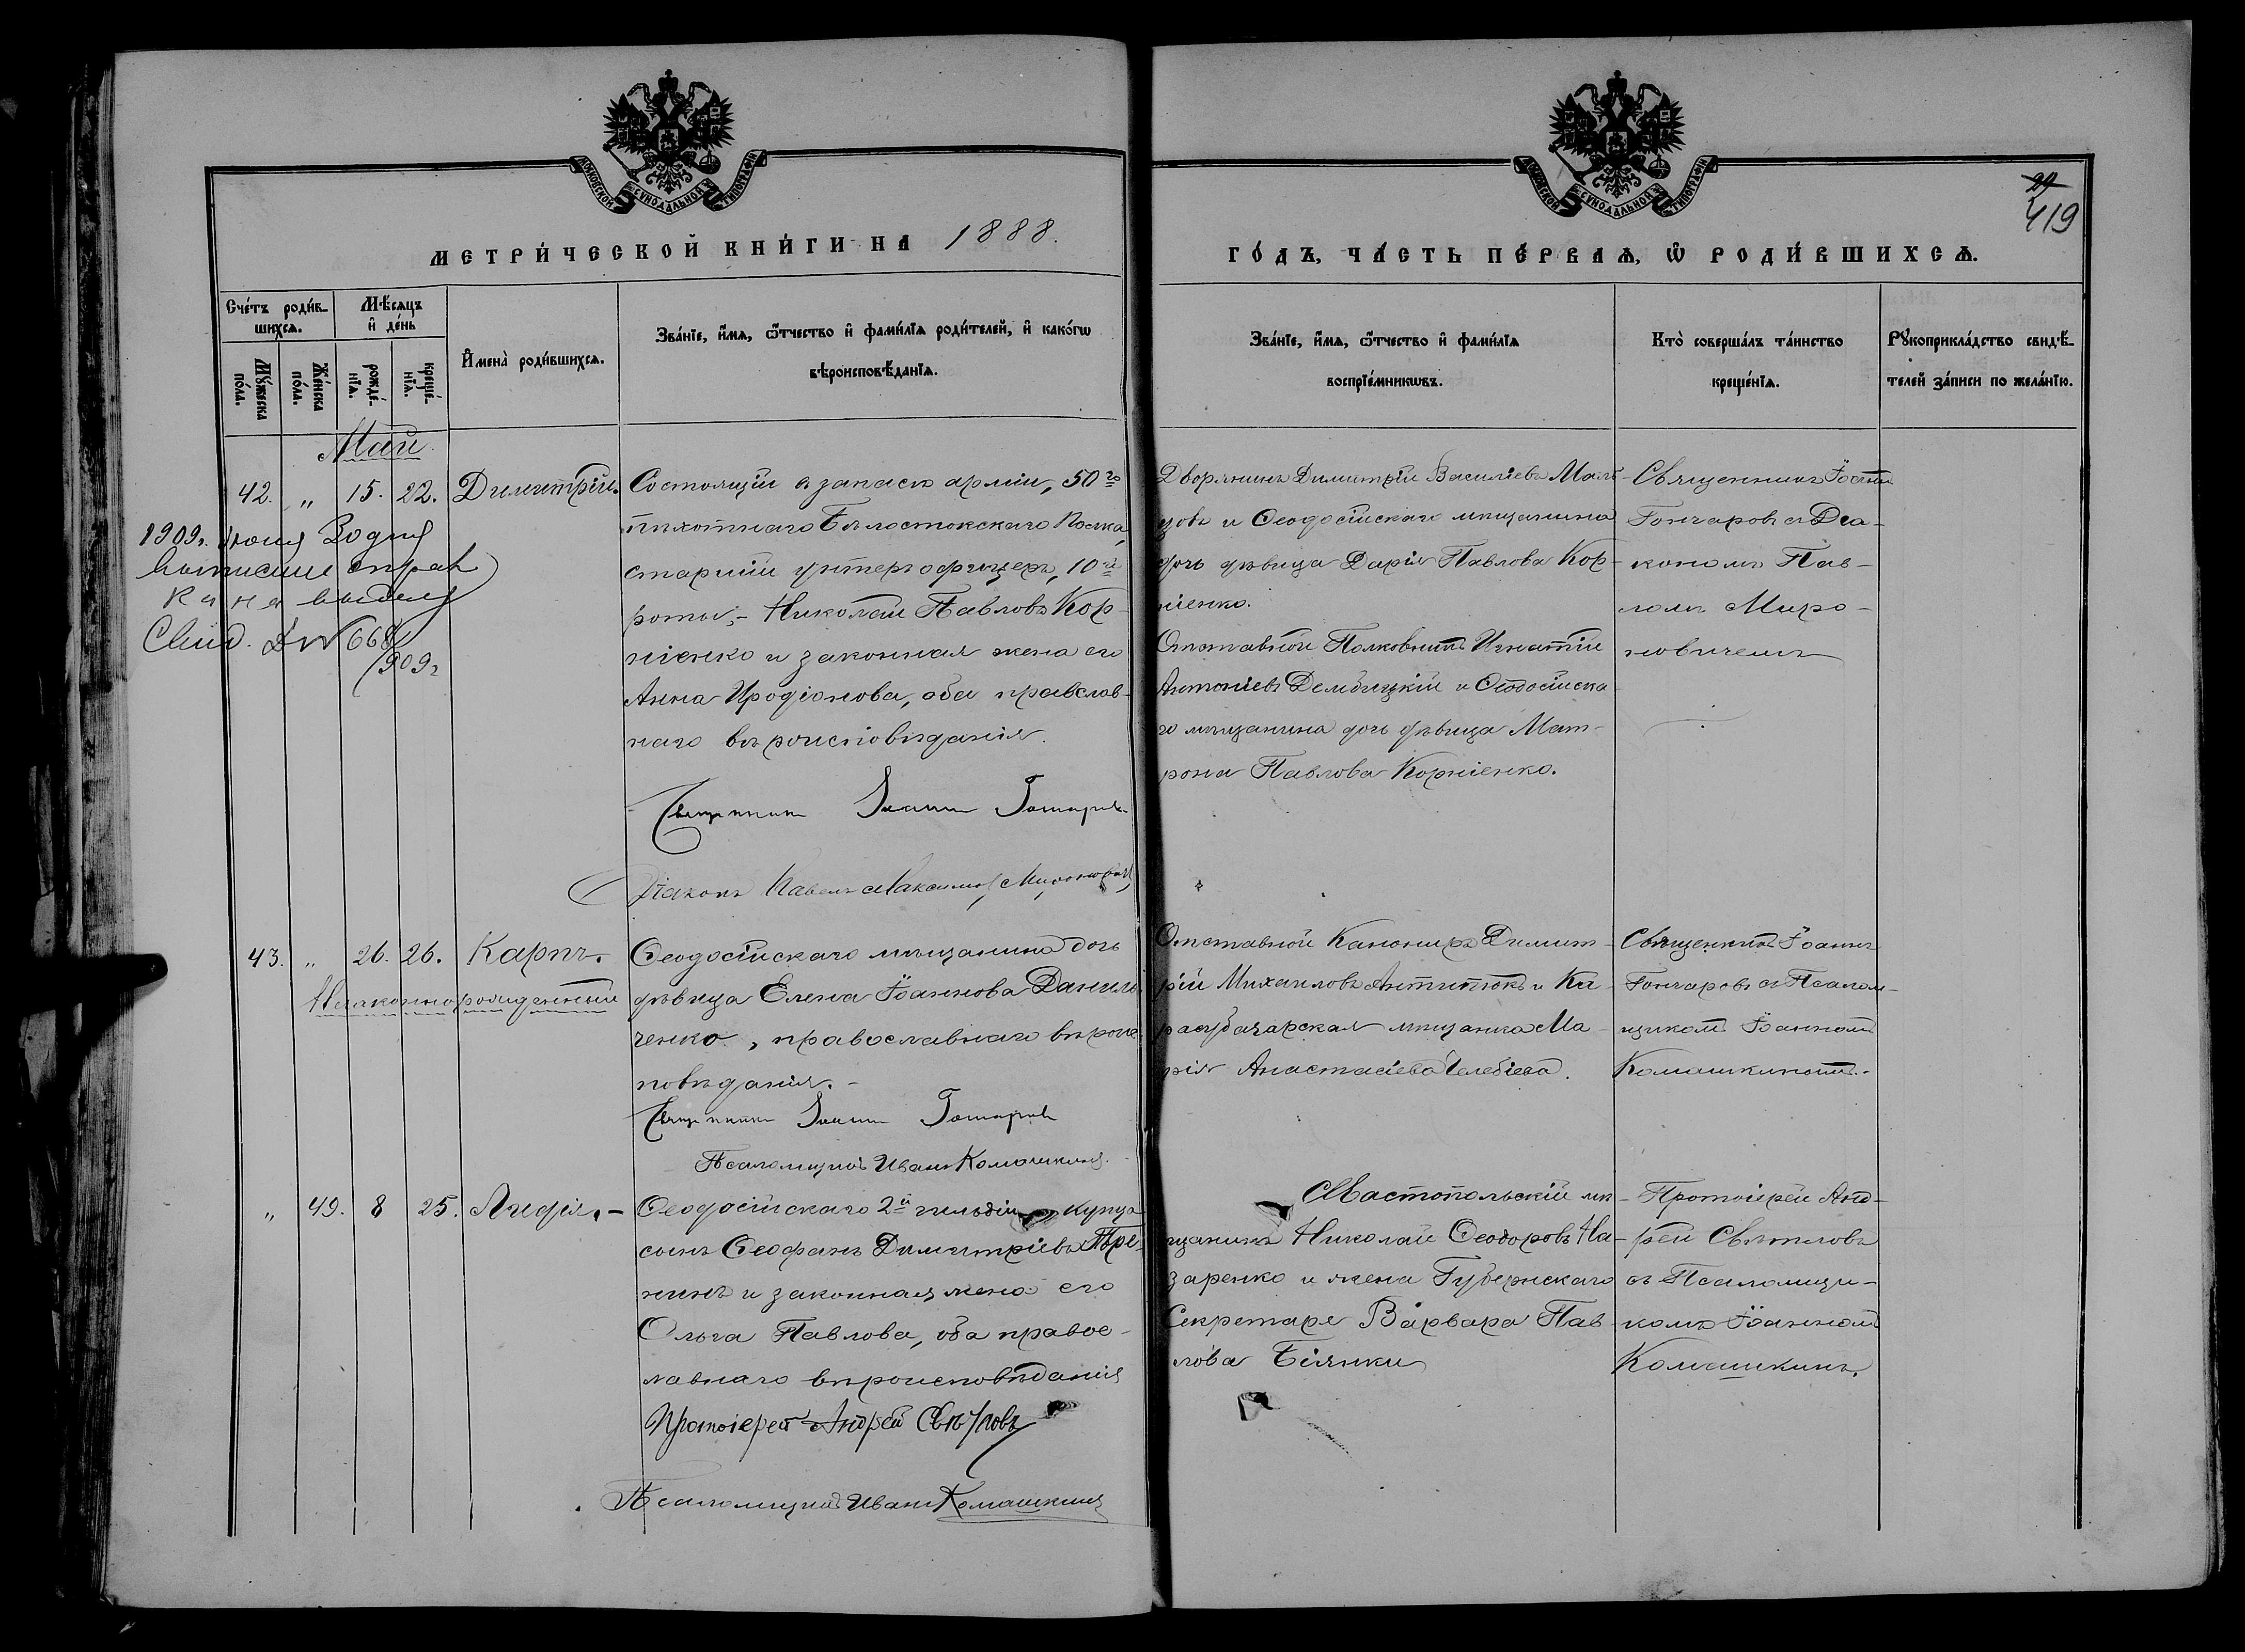 МОСКОВСКОЙ СѴНОДАЛЬНОЙ ТИПОГРАФІИ
МОСКОВСКОЙ СѴНОДАЛЬНОЙ ТИПОГРАФІИ
419
МЕТРИ́ЧЕСКОЙ КНИ́ГИ НА 1888.
ГО́ДЪ, ЧА́СТЬ ПЕ́РВАѦ, Ѡ҆ РОДИ́ВШИХСѦ.
Сче́тъ роди́в-
шихсѧ.
Мѣ́сѧцъ
и҆ де́нь
Мꙋ́жеска
по́ла.
Же́нска
по́ла.
рожде́-
нїѧ.
креще́-
нїѧ.
И҆мена̀ роди́вшихсѧ.
Зва́нїе, и҆́мѧ, ѻ҆́тчество и҆ фами́лїѧ роди́телей, и҆ како́гѡ
вѣроисповѣ́данїѧ.
Зва́нїе, и҆́мѧ, ѻ҆́тчество и҆ фами́лїѧ
воспрїе́мникѡвъ.
Кто̀ соверша́лъ та́инство
креще́нїѧ.
Рꙋкоприкла́дство свидѣ́-
телей за́писи по жела́нїю.
Май.
42. „ 15. 22. Димитрій.
Состоящій в запасѣ арміи, 50го
пѣхотнаго Бѣлостокскаго Полка,
старшій унтеръ офицеръ, 10й
роты,- Николай Павловъ Кор-
ніенко и законная жена его
Анна Иродіонова, оба православ-
наго вѣроисповѣданія.
Священникъ Іоаннъ Гончаровъ
Діаконъ Павелъ Максимов Мироновичъ
Дворянинъ Димитрій Василіевъ Маль-
цовъ и Ѳеодосійскаго мѣщанина
дочь дѣвица Дарія Павлова Кор-
ніенко.
Отставной Полковникъ Игнатій
Антоніевъ Дембицкій и Ѳеодосійска-
го мѣщанина дочь дѣвица Мат-
рона Павлова Корніенко.
Священникъ Іоаннъ
Гончаровъ съ Діа-
кономъ Пав-
ломъ Миро-
новичемъ
1909г. Іюня 30 дня
выписана справ
ка на выдачу
Свид. № 668
1909г
43. „ 26. 26. Карпъ.
Незаконнорожденный
Ѳеодосійскаго мѣщанина дочь
дѣвица Елена Іоаннова Даниль-
ченко, православнаго вѣроис-
повѣданія.-
Священникъ Іоаннъ Гончаровъ
Псаломщикъ Иванъ Комашкинъ.
Отставной Канониръ Димит-
рій Михаиловъ Антипюкъ и Ка-
расубазарская мѣщанка Ма-
рія Анастасіева Челебіева.
Священникъ Іоаннъ
Гончаровъ съ Псалом-
щикомъ Іоанномъ
Комашкинымъ.-
„ 49. 8 25. Лидія.-
Ѳеодосійскаго 2й гильдіи купца
сынъ Ѳеофанъ Димитріевъ
и законная жена его
Ольга Павлова, оба правос-
лавнаго вѣроисповѣданія
Протоіерей Андрей Свѣтловъ
Псаломщикъ Иванъ Комашкинъ
Севастопольскій мѣ-
щанинъ Николай Ѳеодоровъ На-
заренко и жена Губернскаго
Секретаря Варвара Пав-
лова Біянки
Протоіерей Анд-
рей Свѣтловъ
съ Псаломщи-
комъ Іоанномъ
Комашкинъ.